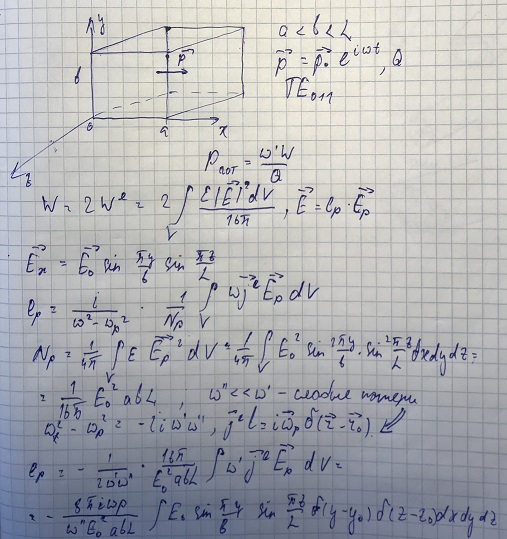 y
a < b < L
p⃗ = p⃗₀ e^{iωt}, Q
p⃗
b
TE₀₁₁
0
a
x
z
P_пот = ω'W / Q
W = 2W^e = 2 ∫_V ε|E⃗|² dV / 16π , E⃗ = e_p · E⃗_p
E⃗_x = E⃗_0 sin πy/b sin πz/L
e_p = i / (ω² - ω_p²) · 1/N_p ∫_V ω j⃗^e E⃗_p dV
N_p = 1/4π ∫_V ε E⃗_p² dV = 1/4π ∫_V E_0² sin² πy/b · sin² πz/L dx dy dz =
= 1/16π E_0² abL ; ω'' << ω' - слабые потери
ω² - ω_p² = -2iω'ω'' , j⃗^e = iωp δ(r⃗ - r⃗_0)
e_p = - 1/2ω'ω'' · 16π / E_0² abL ∫ ω' j⃗^e E⃗_p dV =
= - 8πiωp / ω'' E_0² abL ∫ E_0 sin πy/b sin πz/L δ(y-y_0) δ(z-z_0) dx dy dz